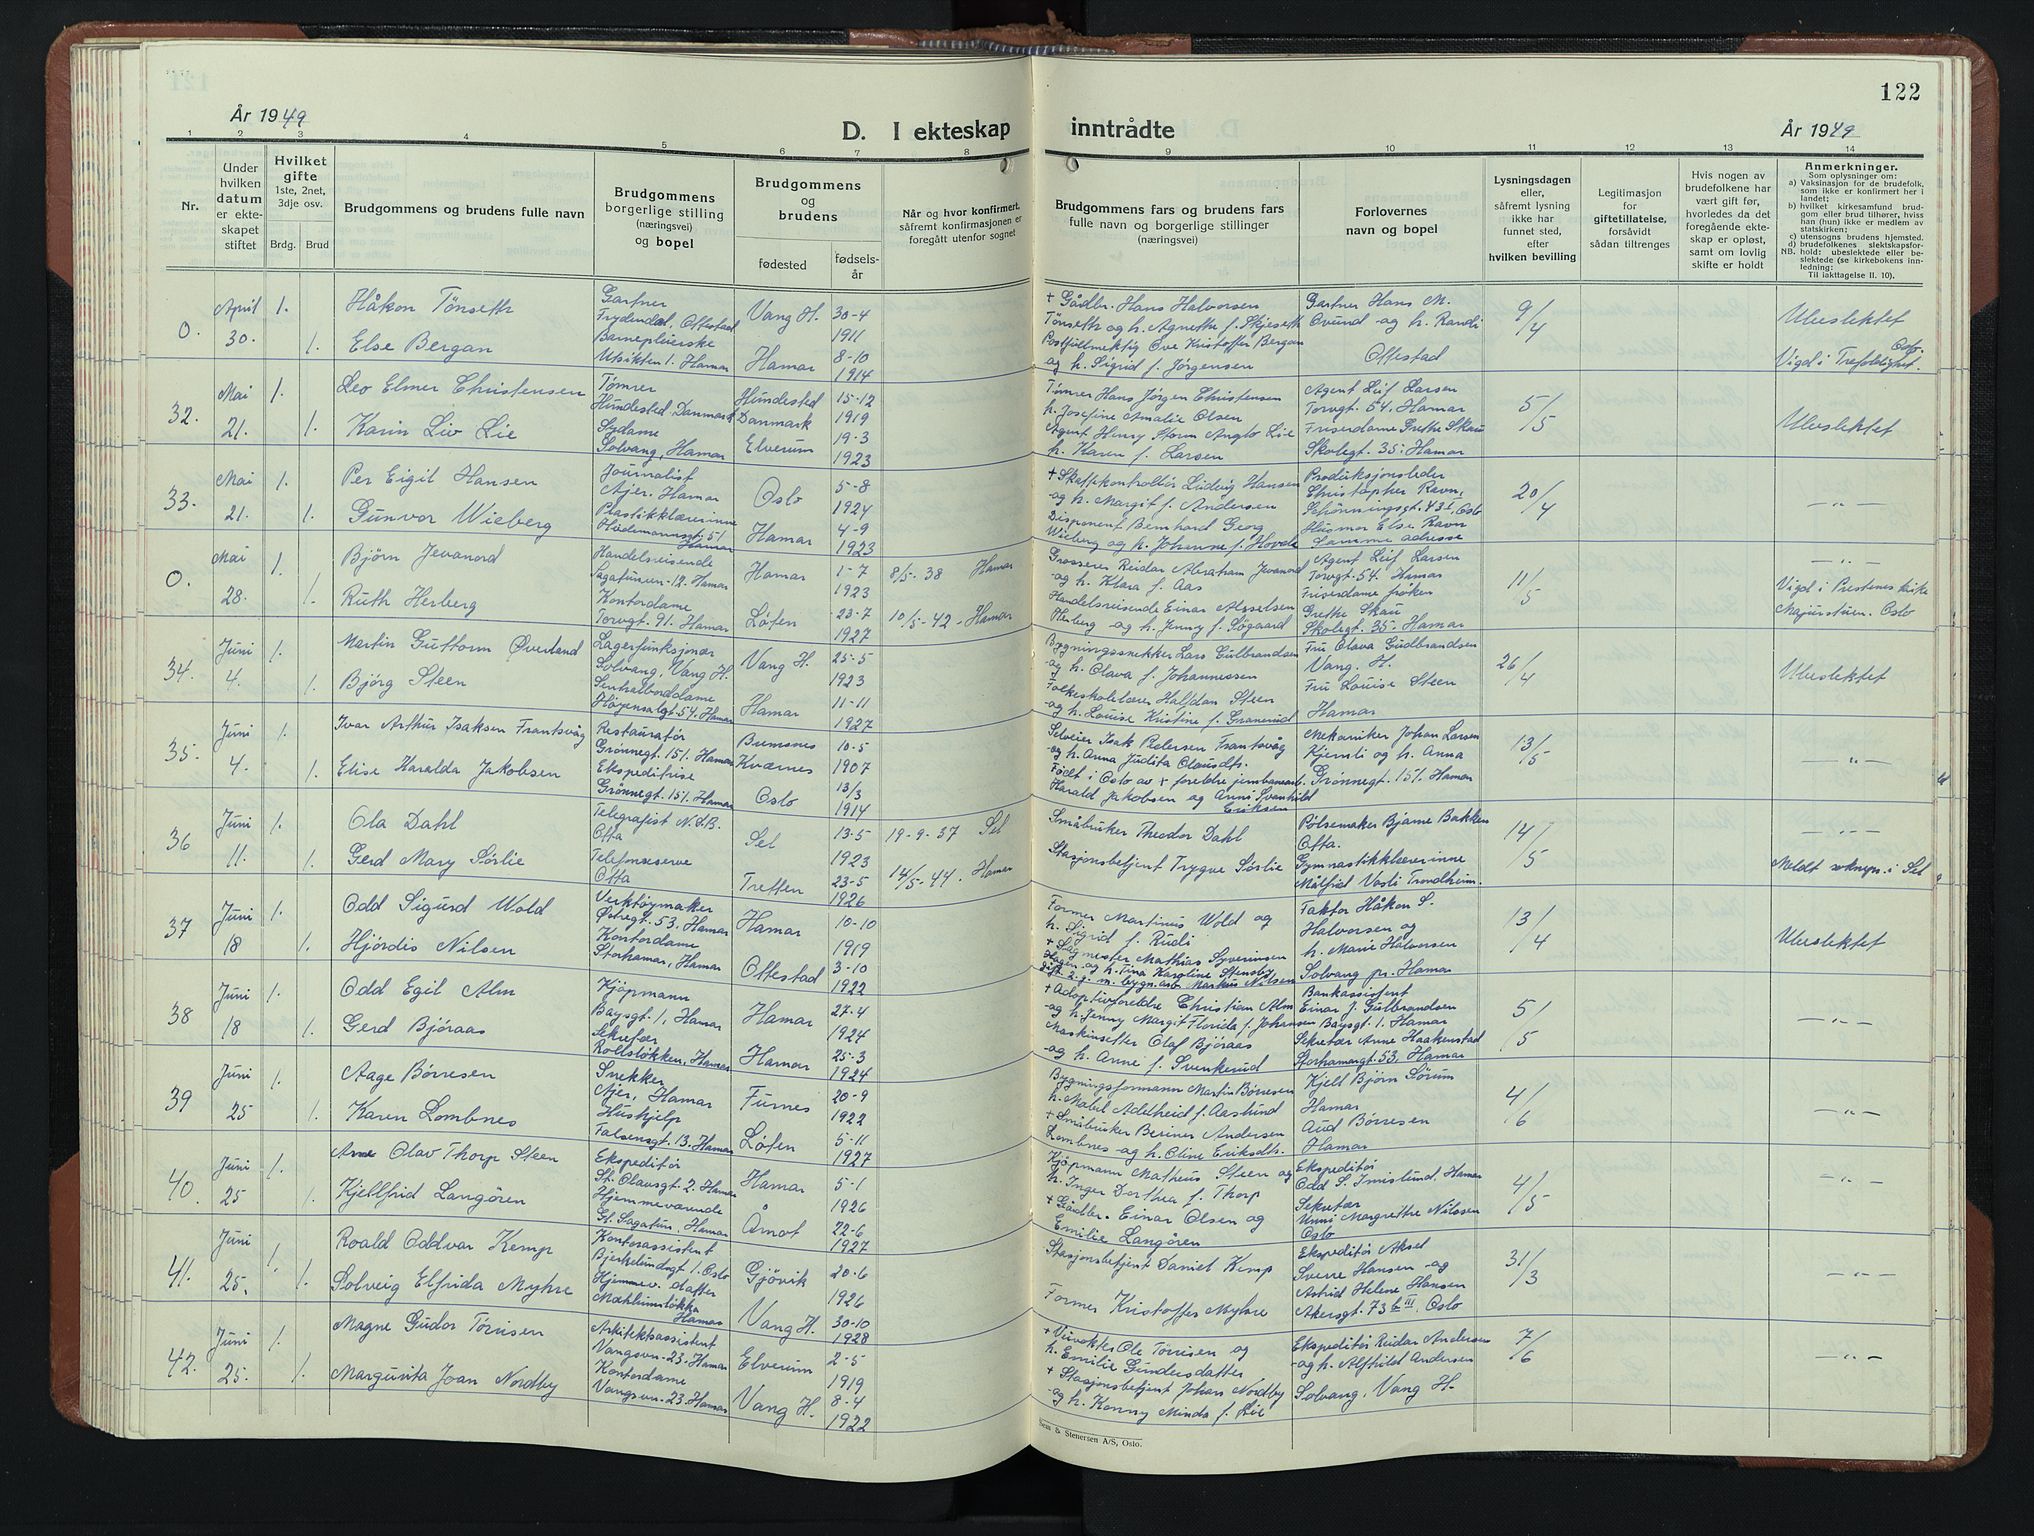 122
År 1949
D. I ekteskap inntrådte
År 1949
1 2 3 4 5 6 7 8 9 10 11 12 13 14
Nr.
Under hvilken datum er ekteskapet stiftet
Hvilket gifte
1ste, 2net, 3dje osv.
Brdg. Brud
Brudgommens og brudens fulle navn
Brudgommens borgerlige stilling (næringsvei) og bopel
Brudgommens og brudens
fødested
fødselsår
Når og hvor konfirmert, såfremt konfirmasjonen er foregått utenfor sognet
Brudgommens fars og brudens fars fulle navn og borgerlige stillinger (næringsvei)
Forlovernes navn og bopel
Lysningsdagen eller, såfremt lysning ikke har funnet sted, efter hvilken bevilling
Legitimasjon for giftetillatelse, forsåvidt sådan tiltrenges
Hvis nogen av brudefolkene har vært gift før, hvorledes da det foregående ekteskap er opløst, samt om lovlig skifte er holdt
Anmerkninger.
Som oplysninger om:
a) Vaksinasjon for de brudefolk, som ikke er konfirmert her i landet;
b) hvilket kirkesamfund brudgom eller brud tilhører, hviss han (hun) ikke er medlem av statskirken;
c) utensogns brudens hjemsted.
d) brudefolkenes slektskapsforhold: ubeslektede eller beslektede (se kirkebokens innledning:
NB. Til iakttagelse II. 10).
0. April 30. 1. 1.
Håkon Tönseth
Else Bergan
Gartner
Frydendal, Ottestad
Barnepleierske
Utsikten 1. Hamar
Vang H. 30-4 1911
Hamar 8-10 1914
+ Gårdbr. Hans Halvorsen
Tönseth og h. Agnethe f. Skjeseth
Postfullmektig Ove Kristoffer Bergan
og h. Sigrid f. Jörgensen
Gartner Hans M.
Ovund og h. Randi
Ottestad
9/4
Ubeslektet
Vigd i Trefoldighet. Oslo.
32. Mai 21. 1. 1.
Leo Elmer Christensen
Karin Liv Lie
Tömrer
Hundested Danmark
Sydame
Solvang, Hamar
Hundested Danmark 15-12 1919
Elverum 19-3 1923
Tömrer Hans Jörgen Christensen
h. Josefine Amalie Olsen
Agent Henry Storm Anglo Lie
h. Karen f. Larsen
Agent Leif Larsen
Torvgt. 54. Hamar
Friserdame Grethe Skau
Skolegt. 35. Hamar
5/5
Ubeslektet
33. Mai 21. 1. 1.
Per Eigil Hansen
Gunvor Wieberg
Journalist
Ajer. Hamar
Plastikklærerinne
Hamar
Oslo 5-8 1924
Hamar 4-9 1923
+ Skattkontrollör Ludvig Hansen
og h. Margit f. Andersen
Disponent Bernhard Georg
Wieberg og h. Johanne f. Hovde
Produksjonsleder
Christopher Ravn,
Schönningsgt. 43 I, Oslo
Husmor Else Ravn
Samme adresse
20/4
-"-
0. Mai 28. 1. 1.
Björn Jevanord
Ruth Herberg
Handelsreisende
Sagatunvn. 12. Hamar
Kontordame
Torvgt. 91. Hamar
Hamar 1-7 1923
Löten 23-7 1927
8/5-38 Hamar
10/5-42-Hamar
Grosserer Reidar Abraham Jevanord
og h. Klara f. Aas
Handelsreisende Einar Alselsen
Herberg og h. Jenny f. Søgaard
Agent Leif Larsen
Torvgt. 54. Hamar
Friserdame frøken
Grethe Skau
Skolegt. 35. Hamar
11/5
-"-
Vigd i Prestenes kirke
Majorstuen. Oslo
34. Juni 4. 1. 1.
Martin Guttorm Øverland
Bjørg Steen
Lagerfunksjonær
Solvang, Vang H.
Sentralborddame
Höyensalgt. 54. Hamar
Vang H. 25-5 1923
Hamar 11-11 1927
Bygningssnekker Lars Gulbrandsen
og h. Olava f. Johannessen
Folkeskolelærer Halfdan Steen
og h. Louise Kristine f. Granerud
Fru Olava Gudbrandsen
Vang. H.
Fru Louise Steen
Hamar
26/4
Ubeslektet
35. Juni 4. 1. 1.
Ivar Arthur Isaksen Frantsvåg
Elise Haralda Jakobsen
Restauratör
Grönnegt. 151. Hamar
Ekspeditrise
Grönnegt. 151. Hamar
Bremsnes Kværnes 10-5 1907
Oslo 13/3 1914
Selveier Isak Pedersen Frantsvåg
og h. Anna Judita Clausdtr.
Født i Oslo av + foreldre jernbanearb.
Harald Jakobsen og Anni Svanhild
Eriksen
Mekaniker Johan Larsen
Kjemli og h. Anna
Grönnegt. 151. Hamar
13/5
-"-
36 Juni 11. 1. 1.
Ola Dahl
Gerd Mary Sörlie
Telegrafist N.S.B.
Otta
Telefonreserve
Otta
Sel 13-5 1923
Tretten 23-5 1926
19-9-37 Sel
14/5-44. Hamar
Småbruker Theodor Dahl
Stasjonsbetjent Trygve Sörlie
Pölsemaker Bjarne Bakken
Otta.
Gymnastikklærerinne
Målfrid Vasli Trondheim.
14/5
-"-
Meldt soknepr. i Sel
37 Juni 18 1. 1.
Odd Sigurd Wold
Hjördis Nilsen
Verktöymaker
Østregt. 53, Hamar
Kontordame
Storhamar, Hamar
Hamar 10-10 1919
Ottestad 3-10 1922
Former Martinus Wold og
h. Sigrid f. Rudi
+ Sagmester Mathias Syverinsen
Hagen og h. Tina Karoline Stensby
gift 2. g. m. bygn.arb. Markus Nilsen
Faktor Håkon S.
Halvorsen og
h. Marie Halvorsen
Solvang pr. Hamar
13/4
Ubeslektet
38 Juni 18 1. 1.
Odd Egil Alm
Gerd Björaas
Kjöpmann
Baysgt. 1, Hamar
Sekretær
Rollsløkken, Hamar
Hamar 27-4 1924
Hamar 25-3 1924
+ Adoptivforeldre Christian Alm
og h. Jenny Margit Florida f. Johansen
Maskinsetter Olaf Björaas
og h. Anne f. Svenkerud
Bankassistent
Einar J. Gulbrandsen
Baysgt. 1. Hamar
Sekretær Anne Haakenstad
Storhamargt. 53, Hamar
5/5
-"-
39 Juni 25 1. 1.
Aage Börresen
Karen Lombnes
Snekker
Ajer, Hamar
Hushjelp
Falsensgt. 13. Hamar
Furnes 20-9 1922
Löten 5-11 1927
Bygningsformann Martin Börresen
h. Mabel Adelheid f. Aaslund
+ Småbruker Beriner Andersen
Lombnes og h. Oline Eriksdtr.
Kjell Björn Sörum
Hamar
Aud Börresen
Hamar
4/6
-"-
40. Juni 25 1. 1.
Arne Olav Thorp Steen
Kjellfrid Langören
Ekspeditör
St. Olavsgt. 2. Hamar
Hjemmeværende
Gl. Sagatun, Hamar
Hamar 5-1 1926
Åmot 22-6 1927
Kjöpmann Matheus Steen og
h. Inger Dorthea f. Thorp
+ Gårdbr. Einar Olsen og
Emilie Langören
Ekspeditör
Odd S. Imislund, Hamar
Sekretær
Unni Margrethe Nilssen
Oslo
4/5
-"-
41. Juni 25. 1. 1.
Roald Oddvar Kemp
Solveig Elfrida Myhre
Kontorassistent
Bjerkelundsgt. 1. Oslo
Hjemmev. datter
Mæhlumsløkka
Hamar
Gjövik 20-6 1926
Vang H. 30-10 1928
Stasjonsbetjent Daniel Kemp
Former Kristoffer Myhre
Ekspeditör Aksel
Sverre Hansen og
Astrid Helene Hansen
Akersgt. 73 b III, Oslo
31/3
-"-
42. Juni 25. 1. 1.
Magne Gudor Törrisen
Margunita Joan Nordby
Arkitektassistent
Vangsvn. 23. Hamar
Kontordame
Vangsvn. 23. Hamar
Elverum 2-5 1919
Vang H. 8-4 1922
+ Veivokter Ole Törrisen og
h. Emilie Gundersdatter
+ Stasjonsbetjent Johan Nordby
og h. Konny Minda f. Lie
Ekspeditör Reidar Andersen
og h. Alfhild Andersen
Solvang, Vang H.
7/6
-"-
& Stenersen A/S, Oslo.